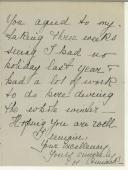 you agreed to my
taking three weeks
seeing I had no
holiday last year &
had a lot of work
to do here during
the whole winter
Hoping you are well
I remain
Your Excellency
Yours sincerely